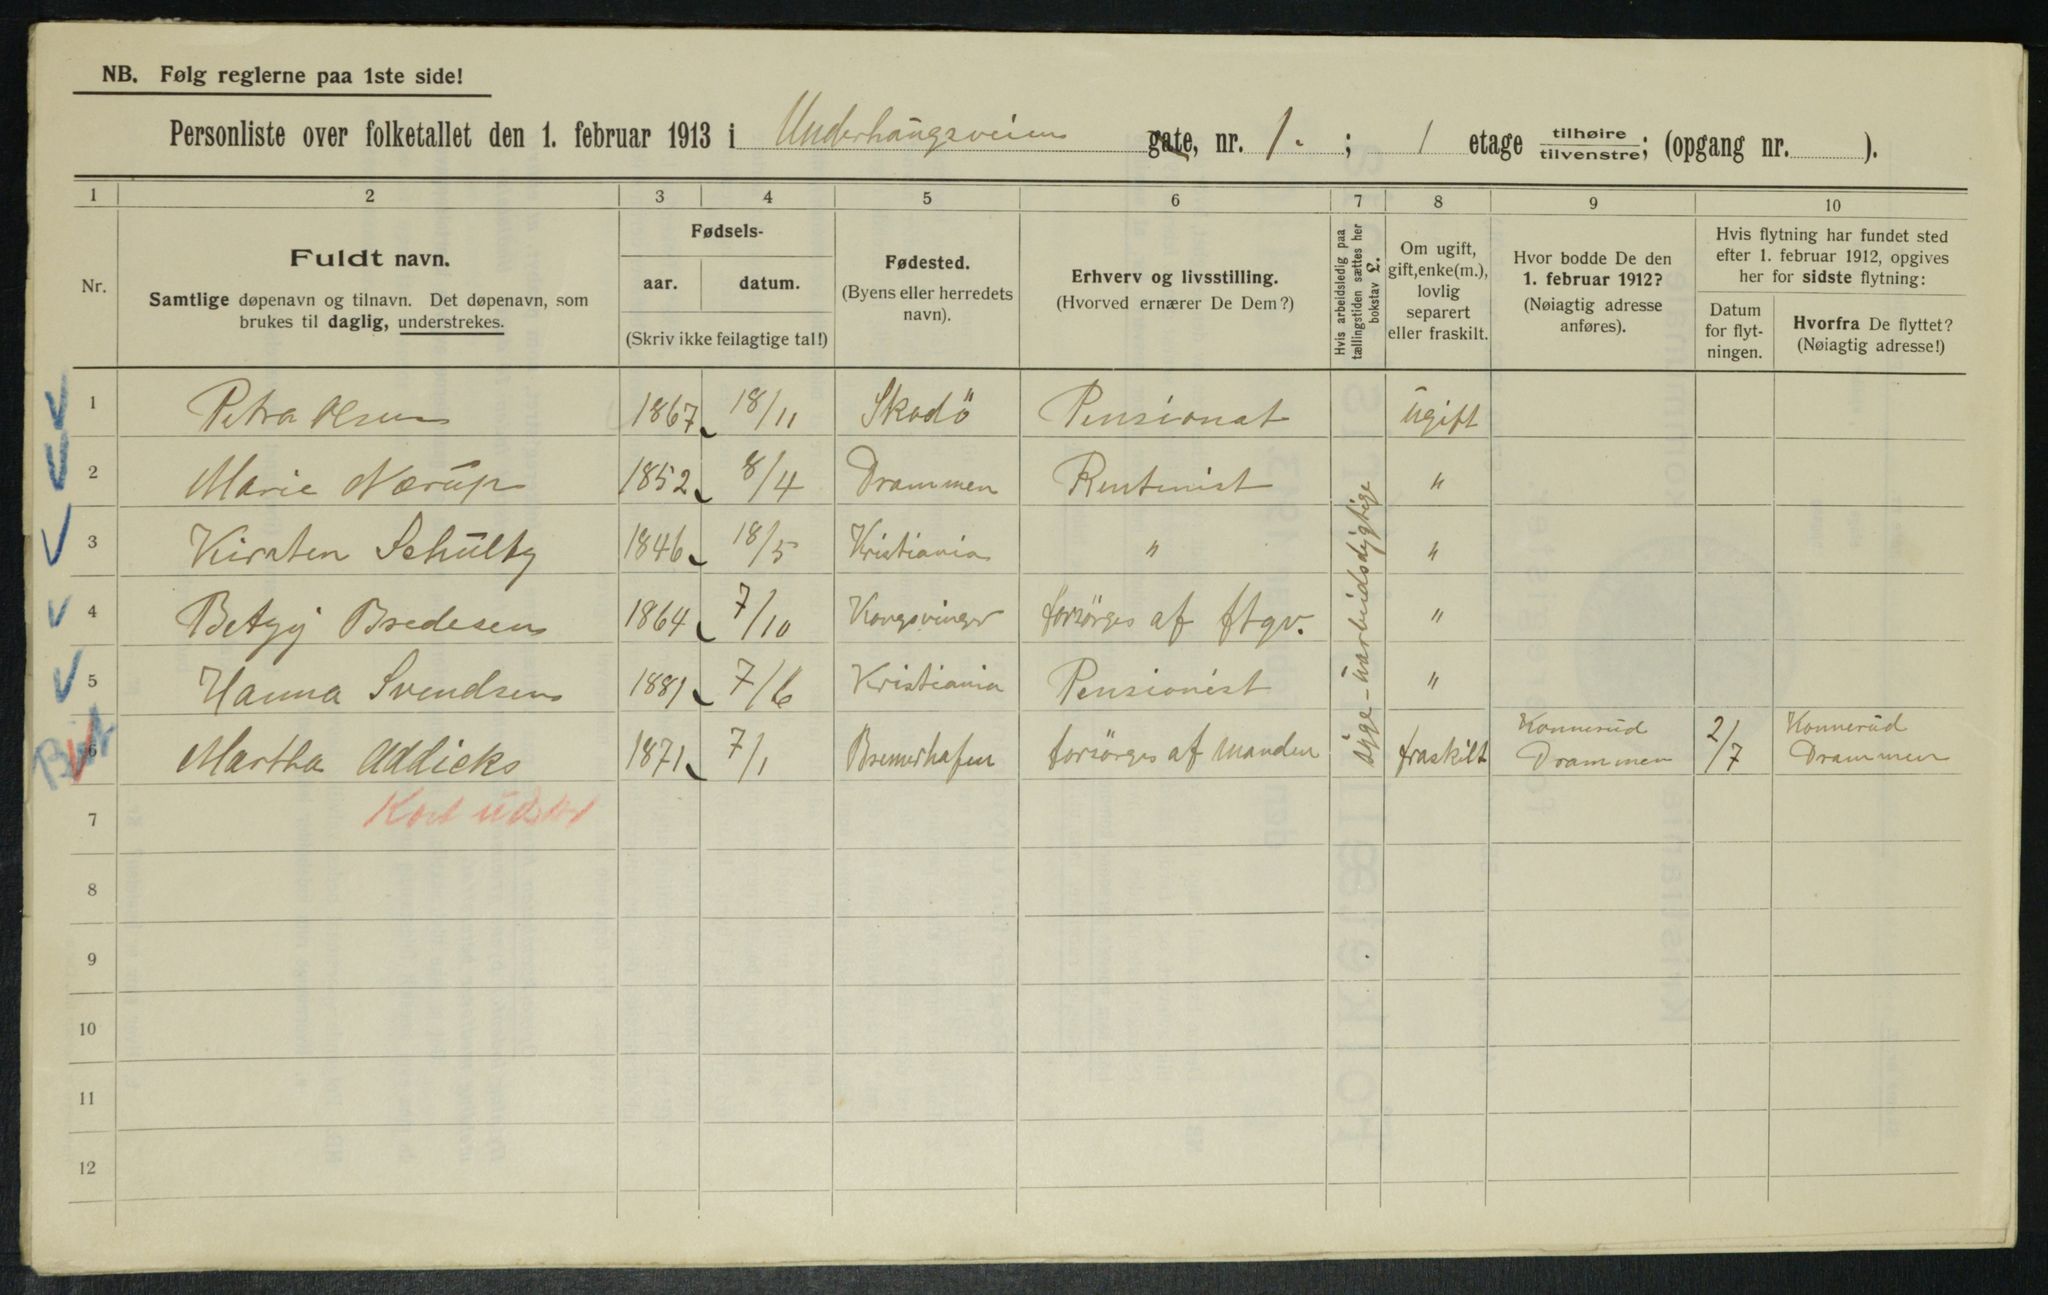 NB. Følg reglerne paa 1ste side!
Personliste over folketallet den 1. februar 1913 i Underhaugsveien gate, nr. 1. ; 1 etage tilhøire/tilvenstre; (opgang nr. ).
1 2 3 4 5 6 7 8 9 10
Nr.
Fuldt navn.
Samtlige døpenavn og tilnavn. Det døpenavn, som
brukes til daglig, understrekes.
Fødsels-
aar. datum.
(Skriv ikke feilagtige tal!)
Fødested.
(Byens eller herredets
navn).
Erhverv og livsstilling.
(Hvorved ernærer De Dem?)
Hvis arbeidsledig paa
tællingstiden sættes her
bokstav L.
Om ugift,
gift, enke(m.),
lovlig
separert
eller fraskilt.
Hvor bodde De den
1. februar 1912?
(Nøiagtig adresse
anføres).
Hvis flytning har fundet sted
efter 1. februar 1912, opgives
her for sidste flytning:
Datum
for flyt-
ningen.
Hvorfra De flyttet?
(Nøiagtig adresse!)
1 Petra Olsen 1867 18/11 Skadö Pensionat ugift
2 Marie Nærup 1852 8/4 Drammen Rentenist "
3 Kirsten Schultz 1846 18/5 Kristiania " "
4 Betzy Bredesen 1864 7/10 Kongsvinger forsörges af ftgv. "
5 Hanna Svendsen 1881 7/6 Kristiania Pensionist "
6 Martha Addicks 1871 7/1 Bremerhafen forsörges af manden fraskilt Konnerud Drammen 2/7 Konnerud Drammen
Kort udskr
7
8
9
10
11
12